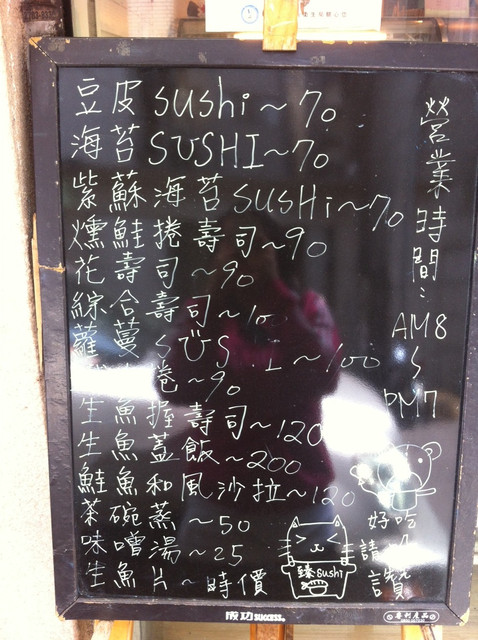 豆皮 sushi~70
海苔 SUSHI~70
紫蘇海苔 SUSHi~70
燻鮭捲壽司~90
花壽司~90
綜合壽司~
~100
卷~90
生魚握壽司~120
生魚蓋飯~200
鮭魚和風沙拉~120
茶碗蒸~50
味噌湯~25
生魚片~時價
營業時間:
AM8
~
PM7
好吃
請
讚
臻 sushi
成功 SUCCESS.
專利產品